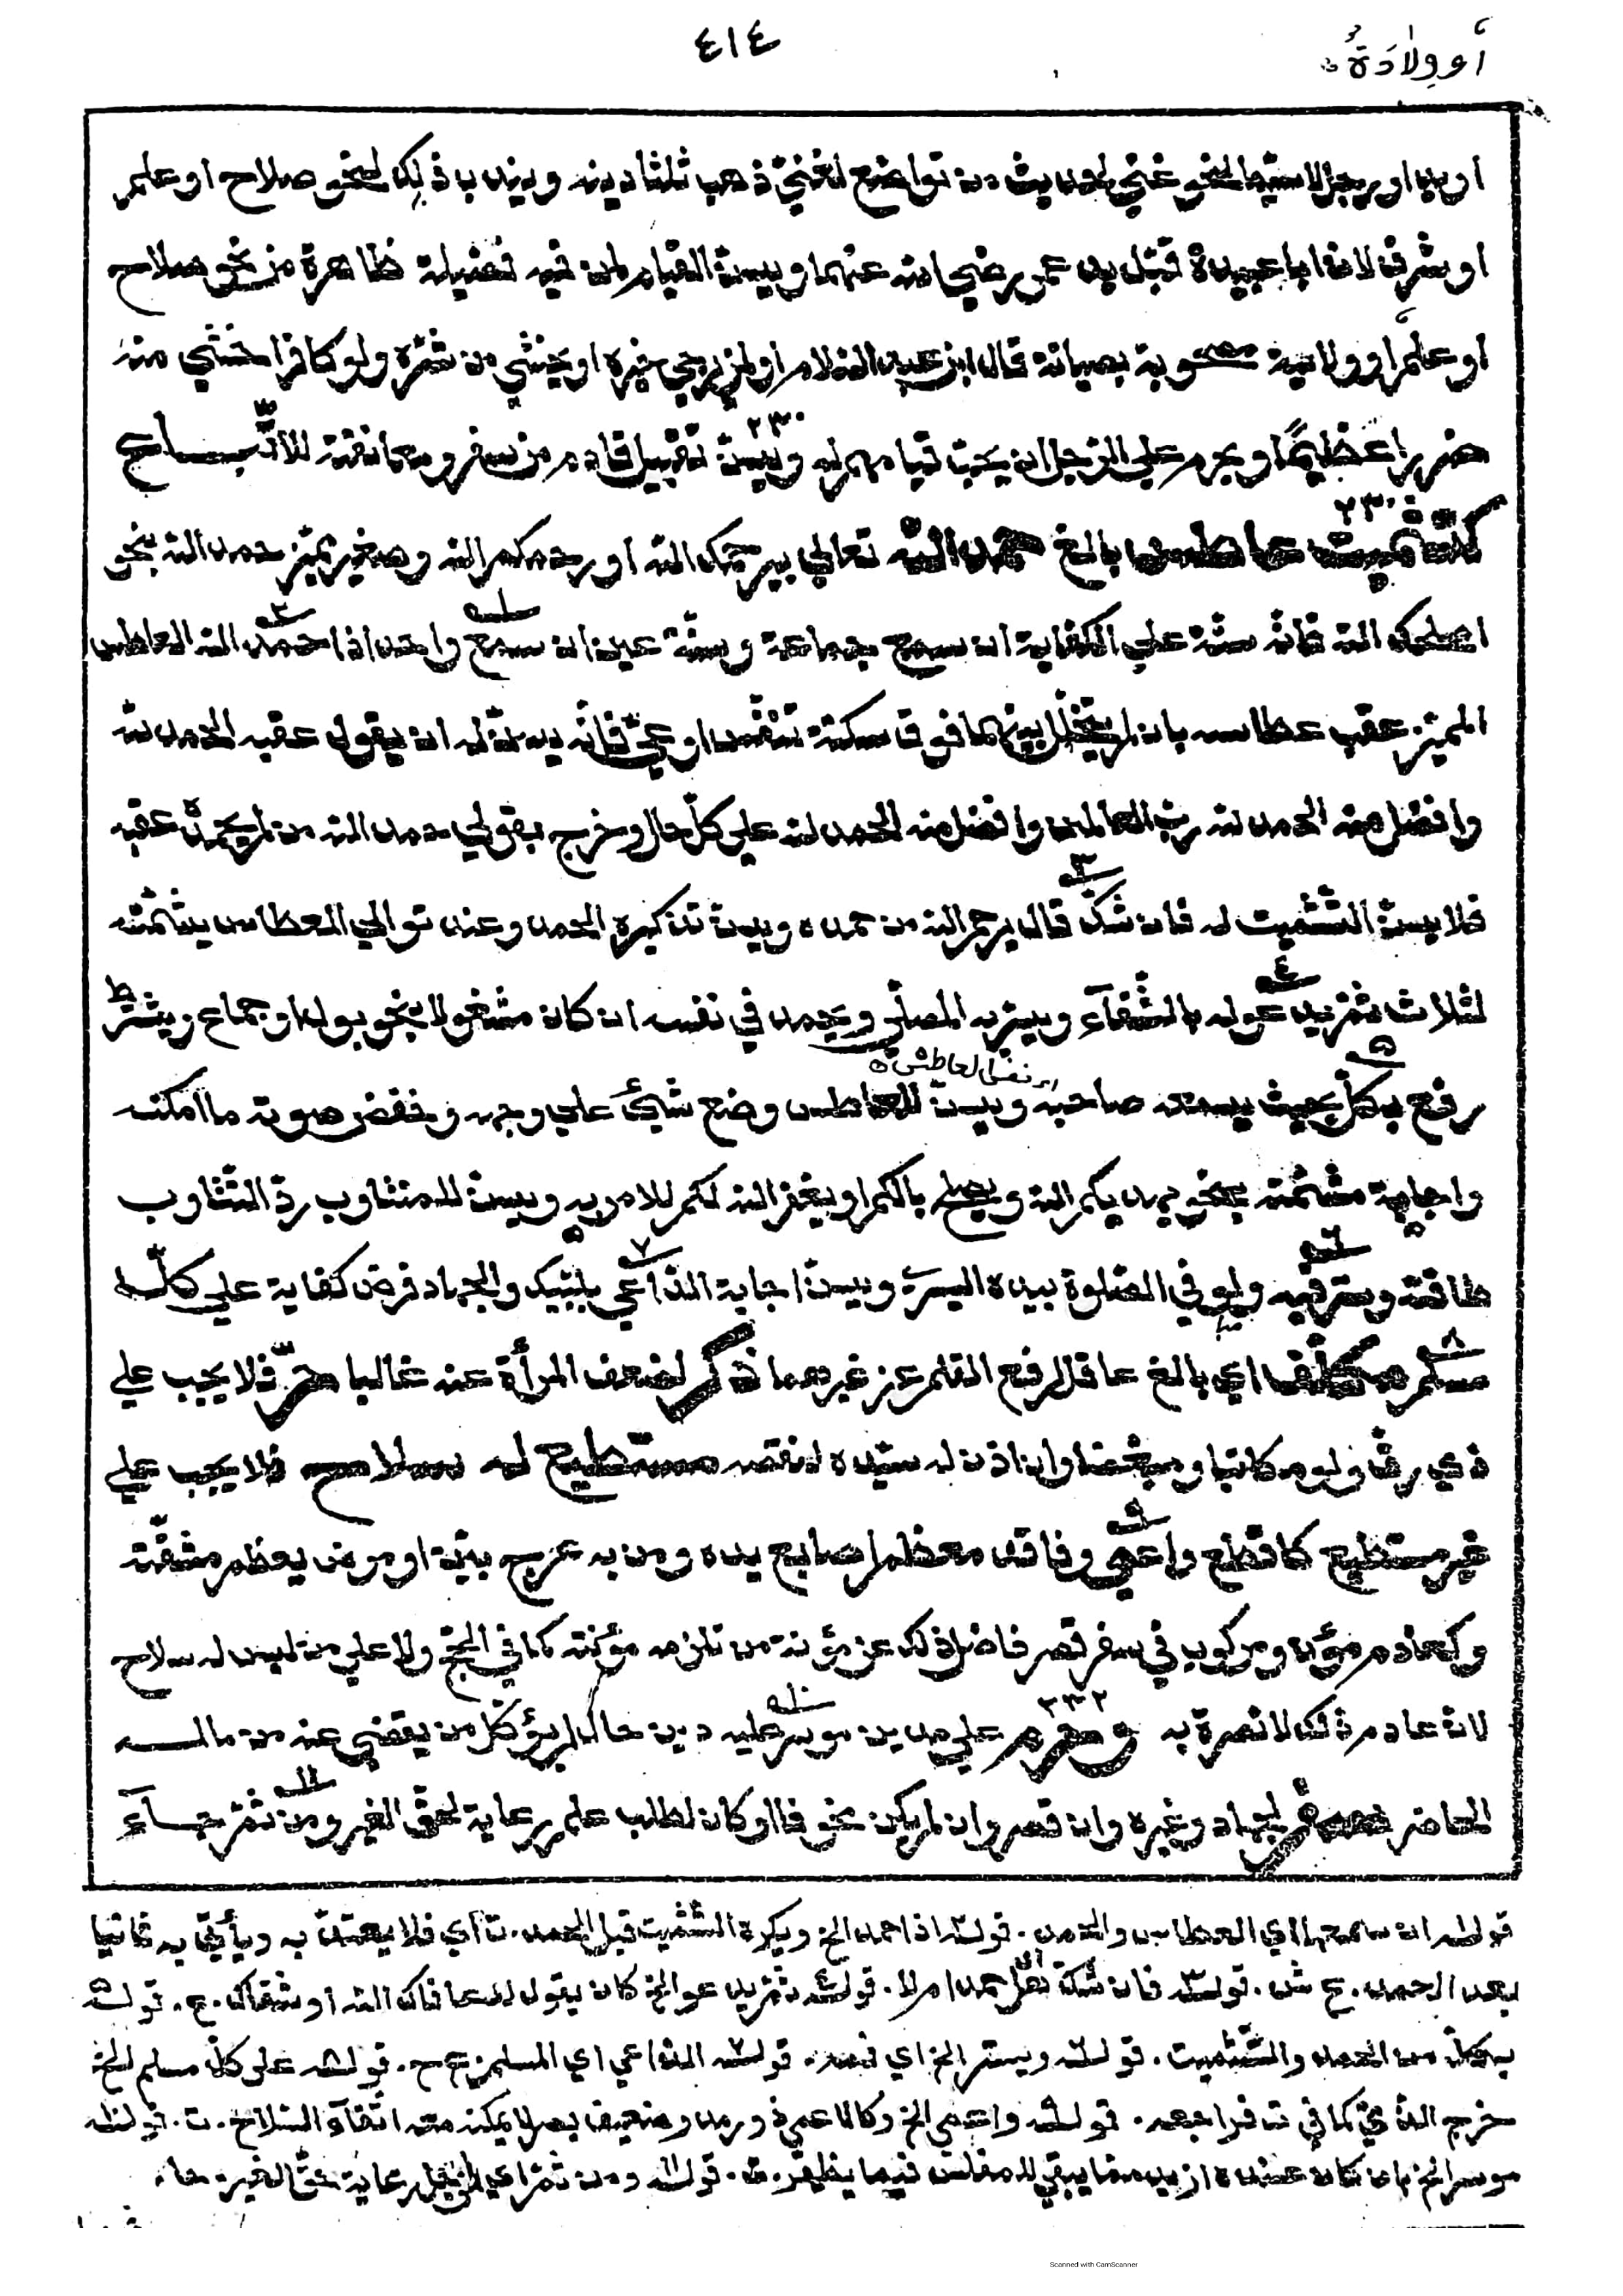 ٤١٤
أو وِلَادَةُ
او يد او رجل لا سيما لنحو غني لحديث من تواضع لغني ذهب ثلثا دينه ويندب ذلك لنحو صلاح او علم
او شرف لان ابا عبيدة قبل يد عمر رضي الله عنهما ويسن القيام لمن فيه فضيلة ظاهرة من نحو صلاح
او علم او ولاية مصحوبة بصيانة قال ابن عبد السلام او لمن يرجى خيره او يخشى من شره ولو كافرا خشي منه
ضررا عظيما ويحرم على الرجل ان يحب قيامهم له ويسن تقبيل قادم من سفر ومعانقته للاتباع
٢٣٠
كتشميت عاطس بالغ حمد الله تعالى بيرحمك الله او رحمكم الله وصغير مميز حمد الله بنحو
٢٣٠
اصلحك الله فانه سنة على الكفاية ان سمع جماعة وسنة عين ان سمع واحد اذا حمد الله العاطس
المميز عقب عطاسه بان لم يتخلل بينهما فوق سكتة تنفس او عي فانه يسن له ان يقول عقبه الحمد لله
وافضل منه الحمد لله رب العالمين وافضل منه الحمد لله على كل حال وخرج بقولي حمد الله من لم يحمده عقبه
فلا يسن التشميت له فان شك قال يرحم الله من حمده ويسن تذكيره الحمد وعند توالي العطاس يشمته
لثلاث ثم يدعو له بالشفاء ويسر به المصلي ويحمد في نفسه ان كان مشغولا بنحو بول او جماع ويشترط
رفع بكل بحيث يسمعه صاحبه ويسن للعاطس وضع شيء على وجهه وخفض صوته ما امكنه
اي نفس العاطس
واجابة مشمته بنحو يهديكم الله ويصلح بالكم او يغفر الله لكم للامر به ويسن للمتثاوب رد التثاوب
طاقته وستر فيه ولو في الصلوة بيده اليسرى ويسن اجابة الداعي بلبيك والجهاد فرض كفاية على كل
مسلم مكلف اي بالغ عاقل لرفع القلم عن غيرهما ذكر لضعف المرأة عنه غالبا حر فلا يجب على
ذي رق ولو مكاتبا ومبعضا وان اذن له سيده لنقصه مستطيع له سلاح فلا يجب على
غير مستطيع كاقطع واعمى وفاقد معظم اصابع يده ومن به عرج بين او مرض يعظم مشقته
وكعادم مؤن ومركوب في سفر قصر فاضل ذلك عن مؤنة من تلزمه مؤنته كما في الحج ولا على من ليس له سلاح
لان عادم ذلك لا نصرة به وحرم على مدين موسر عليه دين حال لم يوكل من يقضي عنه من ماله
٢٣٢
الحاضر سفر لجهاد وغيره وان قصر وان لم يكن مخوفا او كان لطلب علم رعاية لحق الغير ومن ثم جاء
قوله ان سمع اي العطاس والحمد. قوله اذا حمد الخ ويكره التشميت قبل الحمد. ت اي فلا يعتد به ويأتي به ثانيا
بعد الحمد. ع ش. قوله فان شك اي هل حمد ام لا. قوله ثم يدعو الخ كان يقول له عافاك الله او شفاك. ع. قوله
بكل من الحمد والتشميت. قوله ويستر الخ اي فمه. قوله الداعي اي المسلم. ح. قوله على كل مسلم الخ
خرج الذمي كما في ت فراجعه. قوله واعمى الخ وكالاعمى ذو رمد وضعيف بصر لا يمكنه معه اتقاء السلاح. ت. قوله
موسر الخ بان كان عنده ازيد مما يبقى للمفلس فيما يظهر. ت. قوله ومن ثم اي لاجل رعاية حق الغير.
Scanned with CamScanner